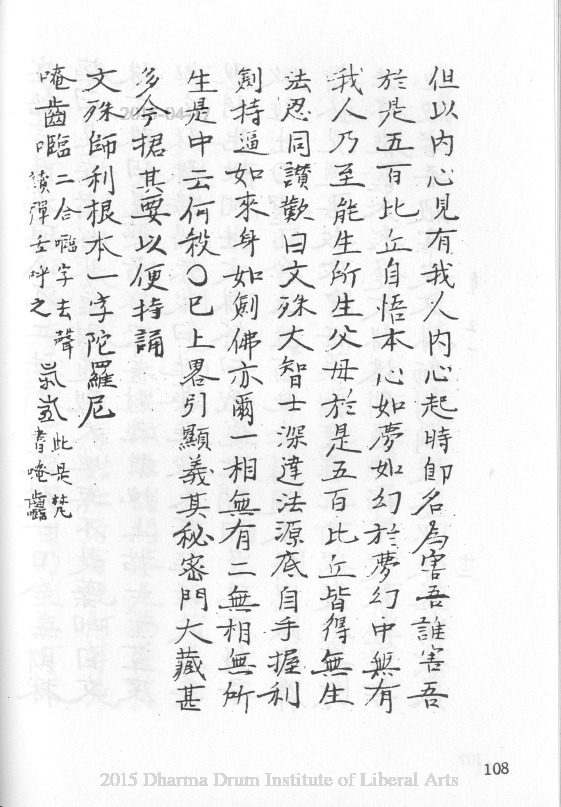 但以內心見有我人內心起時卽名為害吾誰害吾
於是五百比丘自悟本心如夢如幻於夢幻中無有
我人乃至能生所生父母於是五百比丘皆得無生
法忍同讚歎曰文殊大智士深達法源底自手握利
劍持逼如來身如劍佛亦爾一相無有二無相無所
生是中云何殺○已上畧引顯義其秘密門大藏甚
多今捃其要以便持誦
文殊師利根本一字陀羅尼
唵齒㘕二合㘕字去聲讀彈舌呼之 此是梵書唵齒
108
2015 Dharma Drum Institute of Liberal Arts